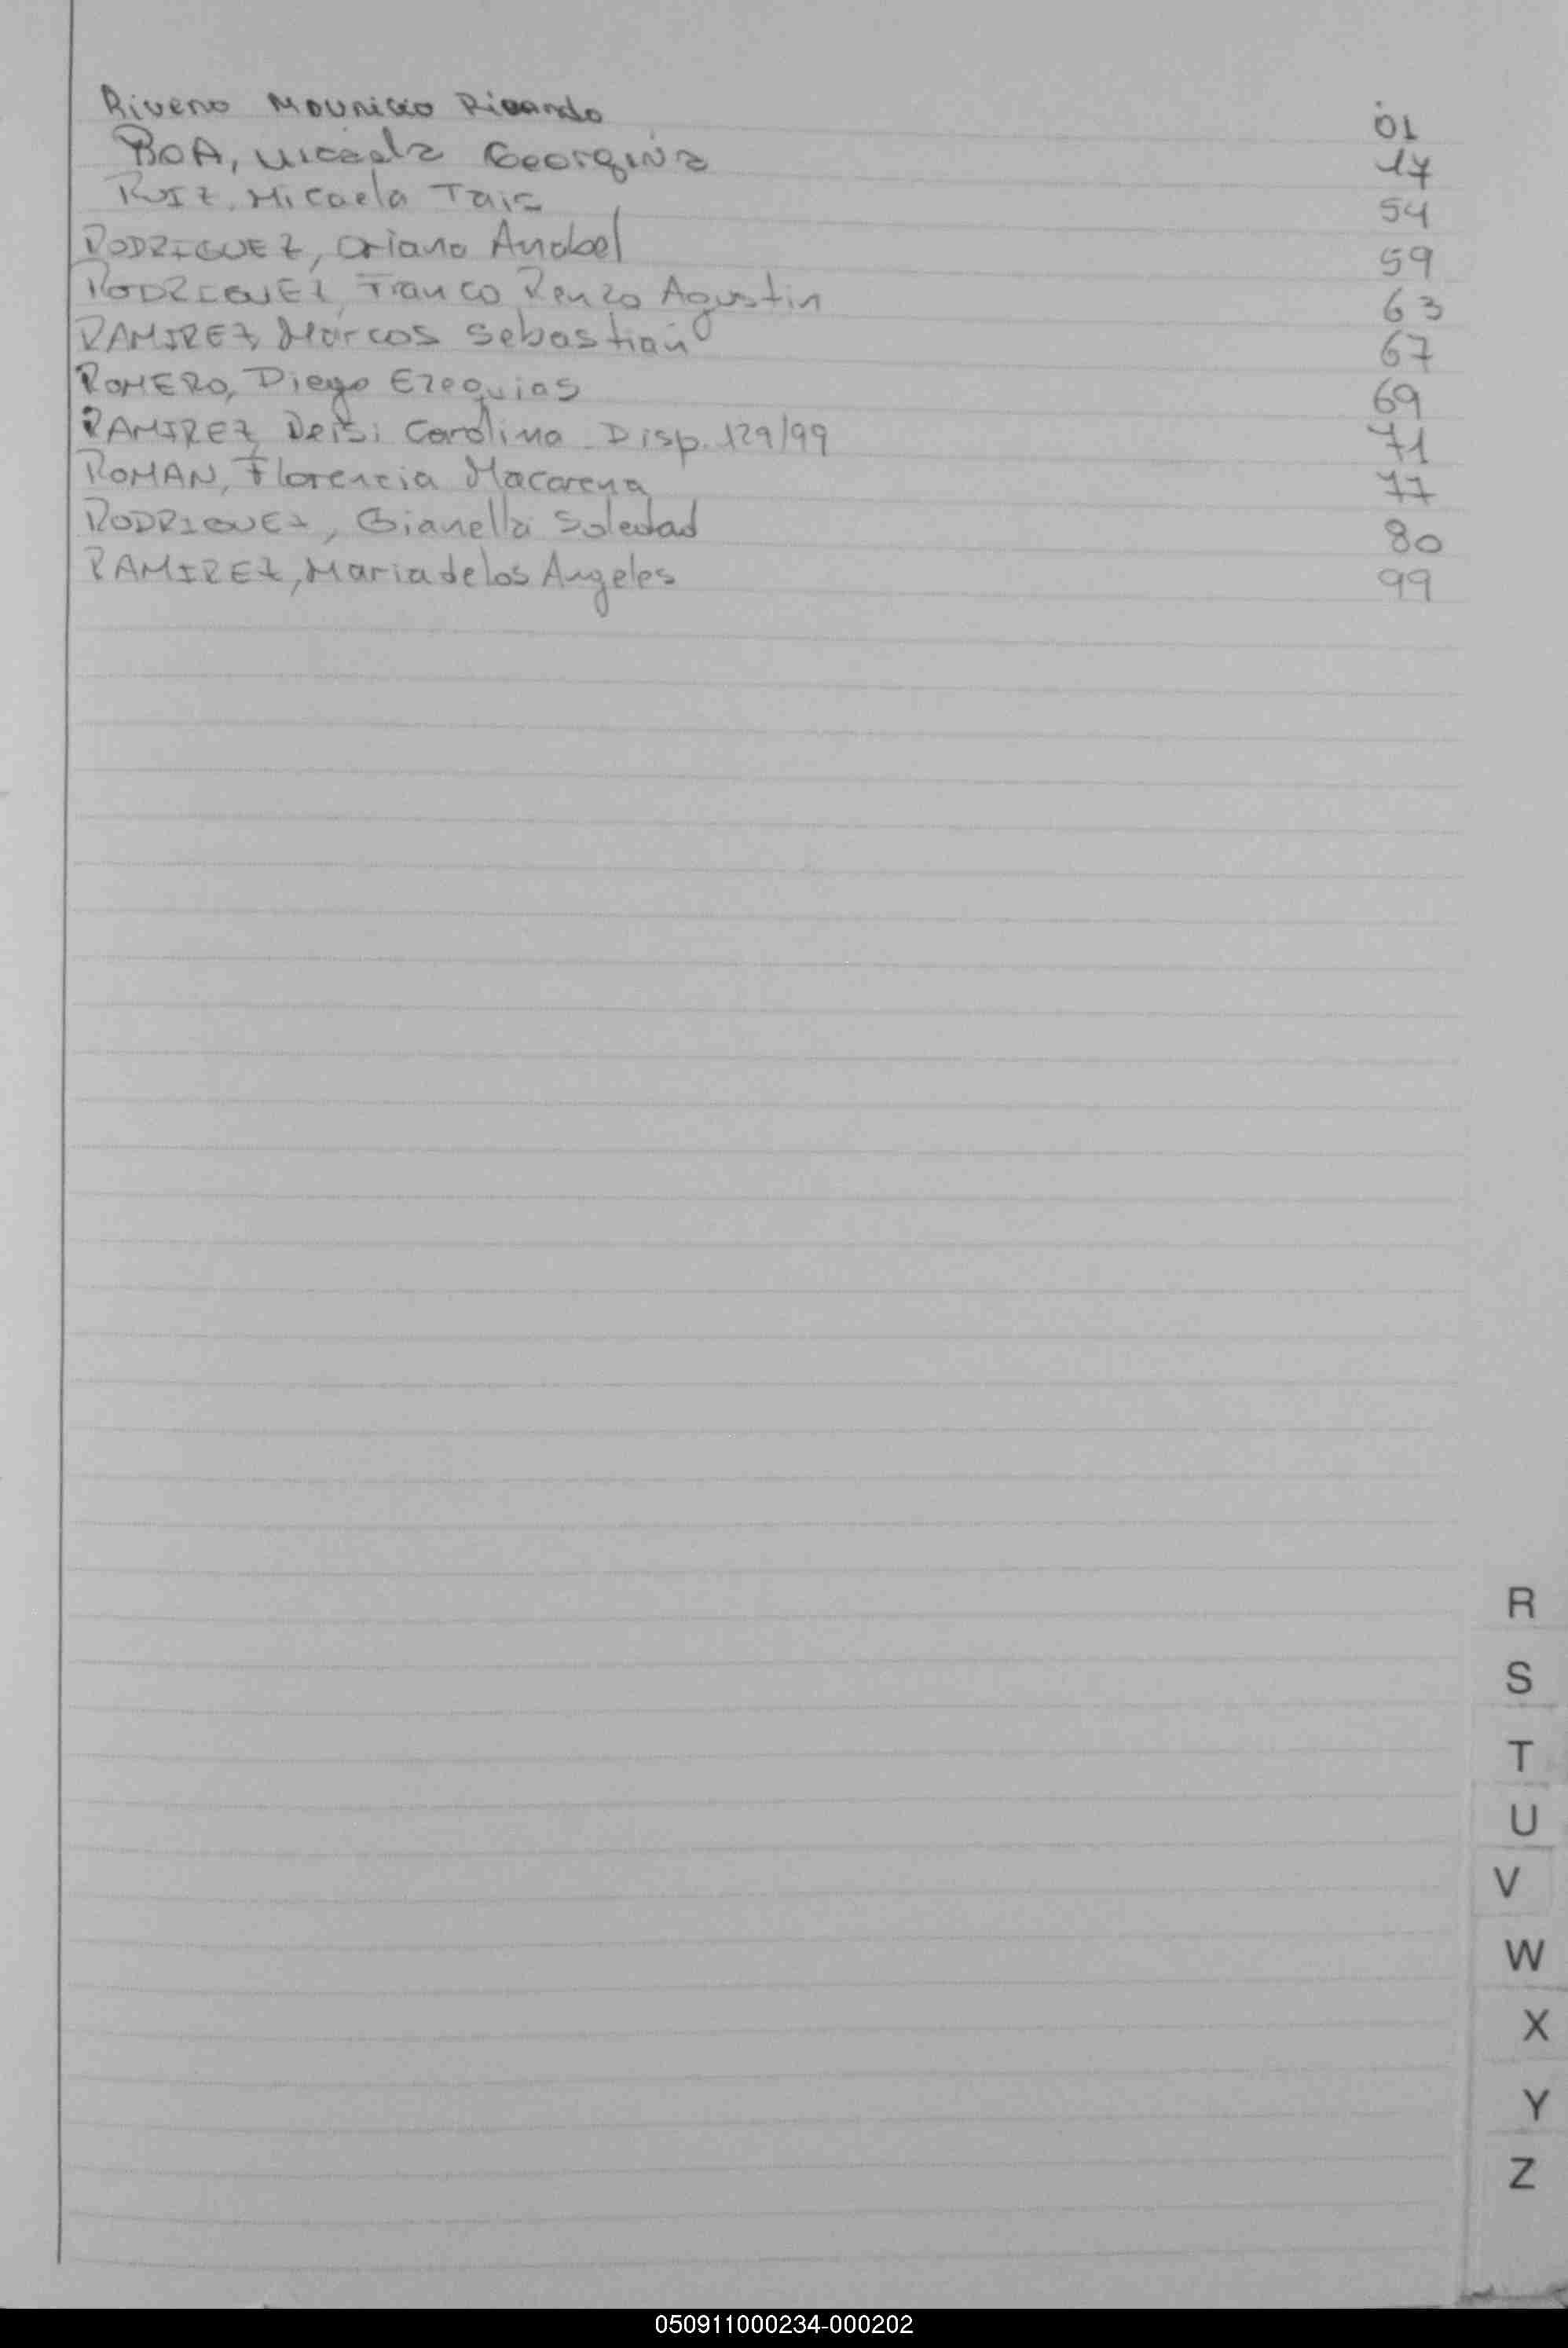 Rivero Mauricio Ricardo 01
ROA, Micaela Georgina 17
RUIZ, Micaela Tais 54
RODRIGUEZ, Oriana Anabel 59
RODRIGUEZ, Franco Renzo Agustin 63
RAMIREZ, Marcos Sebastian 67
ROMERO, Diego Ezequias 69
RAMIREZ, Deisi Carolina Disp. 129/99 71
ROMAN, Florencia Macarena 77
RODRIGUEZ, Gianella Soledad 80
RAMIREZ, Maria de los Angeles 99
R
S
T
U
V
W
X
Y
Z
050911000234-000202